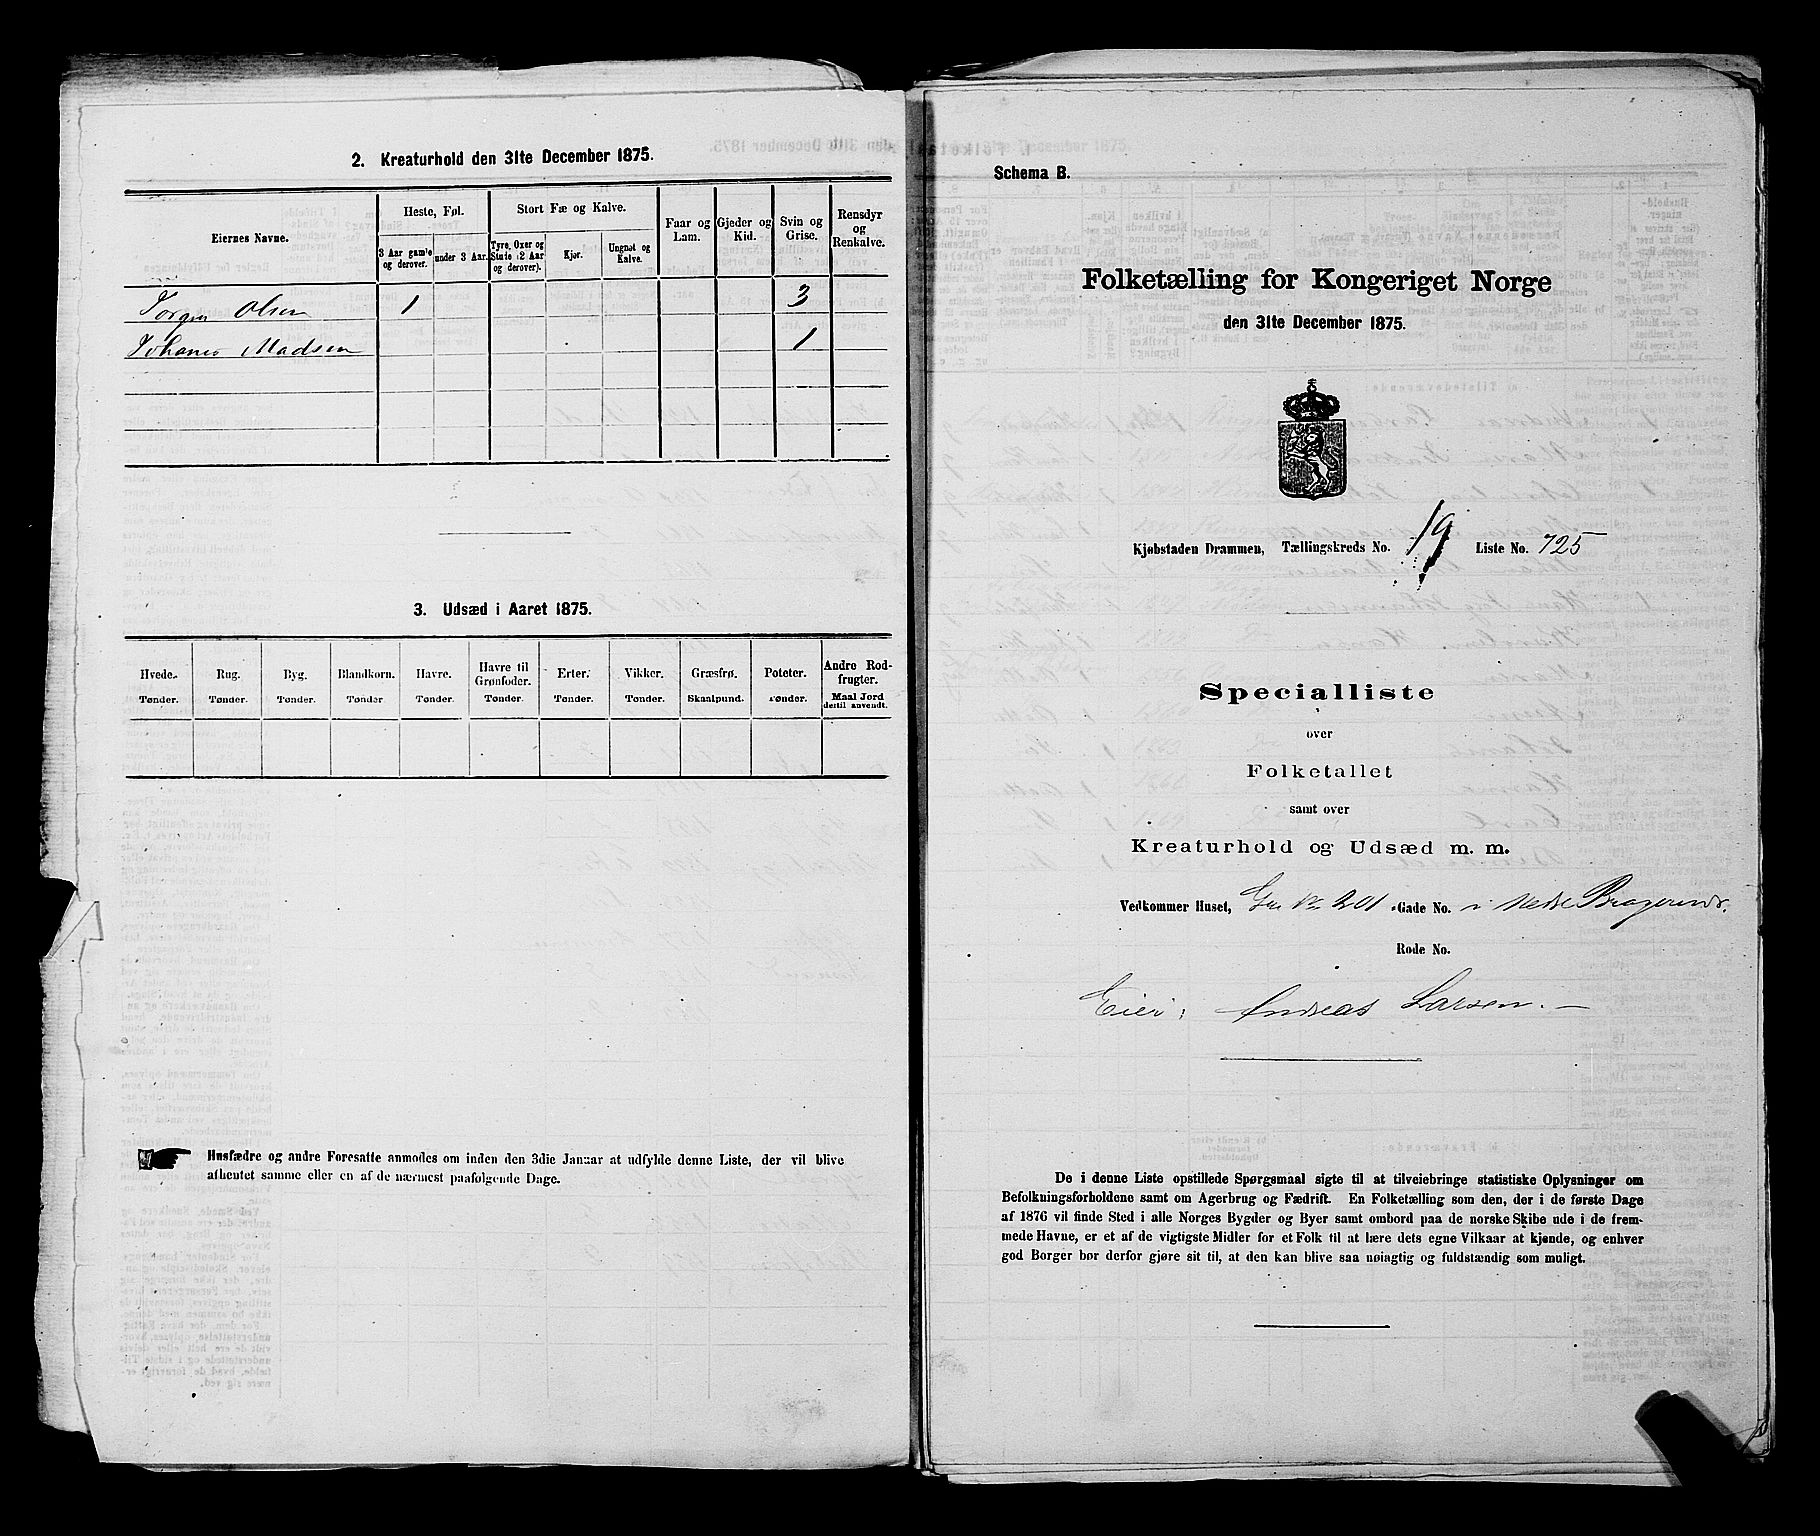 2. Kreaturhold den 31te December 1875.
Eiernes Navne.
Heste, Føl.
3 Aar gamle og derover.
under 3 Aar.
Stort Fæ og Kalve.
Tyre, Oxer og Stude (2 Aar og derover).
Kjør.
Ungnøt og Kalve.
Faar og Lam.
Gjeder og Kid.
Svin og Grise.
Rensdyr og Renkalve.
Jørgen Olsen 1 3
Johanes Madsen 1
3. Udsæd i Aaret 1875.
Hvede. Rug. Byg. Blandkorn. Havre. Havre til Grønfoder. Erter. Vikker. Græsfrø. Poteter. Andre Rodfrugter.
Tønder. Tønder. Tønder. Tønder Tønder. Tønder. Tønder. Tønder. Skaalpund. Tønder. Maal Jord dertil anvendt.
Husfædre og andre Foresatte anmodes om inden den 3die Januar at udfylde denne Liste, der vil blive
afhentet samme eller en af de nærmest paafølgende Dage.
Schema B.
Folketælling for Kongeriget Norge
den 31te December 1875.
Kjøbstaden Drammen, Tællingskreds No. 19 Liste No. 725
Specialliste
over
Folketallet
samt over
Kreaturhold og Udsæd m. m.
Vedkommer Huset, 201 Gade No. i Nedre Bragernes.
Rode No.
Eier: Andreas Larsen.
De i denne Liste opstillede Spørgsmaal sigte til at tilveiebringe statistiske Oplysninger om
Befolkningsforholdene samt om Agerbrug og Fædrift. En Folketælling som den, der i de første Dage
af 1876 vil finde Sted i alle Norges Bygder og Byer samt ombord paa de norske Skibe ude i de frem-
mede Havne, er et af de vigtigste Midler for et Folk til at lære dets egne Vilkaar at kjende, og enhver
god Borger bør derfor gjøre sit til, at den kan blive saa nøiagtig og fuldstændig som muligt.